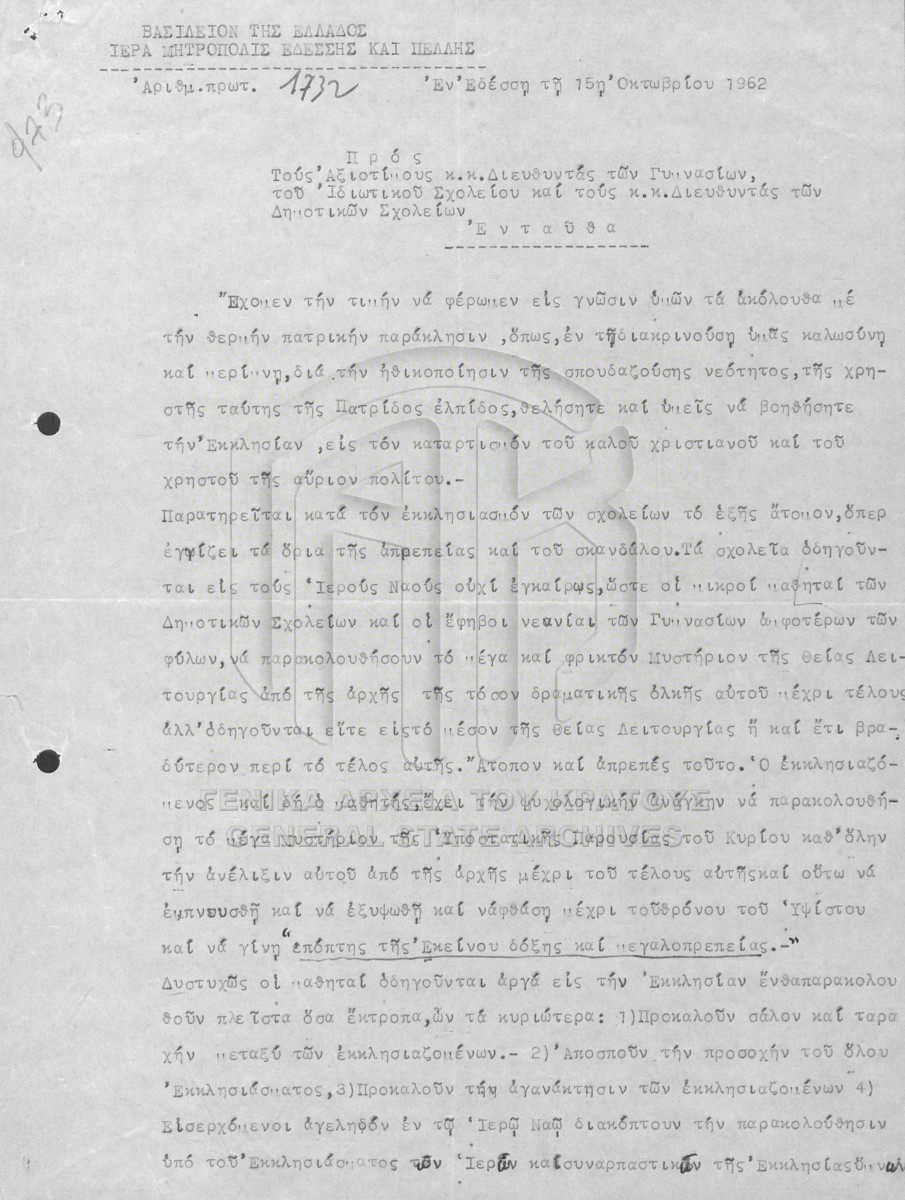 ΒΑΣΙΛΕΙΟΝ ΤΗΣ ΕΛΛΑΔΟΣ
ΙΕΡΑ ΜΗΤΡΟΠΟΛΙΣ ΕΔΕΣΣΗΣ ΚΑΙ ΠΕΛΛΗΣ
Ἀριθμ.πρωτ. 1732 Ἐν Ἐδέσση τῇ 15η Ὀκτωβρίου 1962
973
Π ρ ό ς
Τούς Ἀξιοτίμους κ.κ.Διευθυντάς τῶν Γυμνασίων,
τοῦ Ἰδιωτικοῦ Σχολείου καί τούς κ.κ.Διευθυντάς τῶν
Δημοτικῶν Σχολείων
Ἐ ν τ α ῦ θ α
Ἔχομεν τήν τιμήν νά φέρωμεν εἰς γνῶσιν ὑμῶν τά ἀκόλουθα μέ
τήν θερμήν πατρικήν παράκλησιν ,ὅπως,ἐν τῇδιακρινούση ὑμᾶς καλωσύνη
καί μερίμνη,διά τήν ἠθικοποίησιν τῆς σπουδαζούσης νεότητος,τῆς χρη-
στῆς ταύτης τῆς Πατρίδος ἐλπίδος,θελήσητε καί ὑμεῖς νά βοηθήσητε
τήν Ἐκκλησίαν ,εἰς τόν καταρτισμόν τοῦ καλοῦ χριστιανοῦ καί τοῦ
χρηστοῦ τῆς αὔριον πολίτου.-
Παρατηρεῖται κατά τόν ἐκκλησιασμόν τῶν σχολείων τό ἑξῆς ἄτοπον,ὅπερ
ἐγγίζει τά ὅρια τῆς ἀπρεπείας καί τοῦ σκανδάλου.Τά σχολεῖα ὁδηγοῦν-
ται εἰς τούς Ἱερούς Ναούς οὐχί ἐγκαίρως,ὥστε οἱ μικροί μαθηταί τῶν
Δημοτικῶν Σχολείων καί οἱ ἔφηβοι νεανίαι τῶν Γυμνασίων ἀμφοτέρων τῶν
φύλων,νά παρακολουθήσουν τό μέγα καί φρικτόν Μυστήριον τῆς Θείας Λει-
τουργίας ἀπό τῆς ἀρχῆς τῆς τόσον δραματικῆς ὁλκῆς αὐτοῦ μέχρι τέλους
ἀλλ'ὁδηγοῦνται εἴτε εἰςτό μέσον τῆς Θείας Λειτουργίας ἤ καί ἔτι βρα-
δύτερον περί τό τέλος αὐτῆς.Ἄτοπον καί ἀπρεπές τοῦτο.Ὁ ἐκκλησιαζό-
μενος καί δή ὁ μαθητής,ἔχει τήν ψυχολογικήν ἀνάγκην νά παρακολουθή-
ση τό μέγα Μυστήριον τῆς Ὑποστατικῆς Παρουσίας τοῦ Κυρίου καθ'ὅλην
τήν ἀνέλιξιν αὐτοῦ ἀπό τῆς ἀρχῆς μέχρι τοῦ τέλους αὐτῆςκαί οὕτω νά
ἐμπνευσθῇ καί νά ἐξυψωθῇ καί νάφθάση μέχρι τοῦθρόνου τοῦ Ὑψίστου
καί νά γίνη "ἐπόπτης τῆς Ἐκείνου δόξης καί μεγαλοπρεπείας.-"
Δυστυχῶς οἱ μαθηταί ὁδηγοῦνται ἀργά εἰς τήν Ἐκκλησίαν ἔνθαπαρακολου
θοῦν πλεῖστα ὅσα ἔκτροπα,ὧν τά κυριώτερα: 1)Προκαλοῦν σάλον καί ταρα
χήν μεταξύ τῶν ἐκκλησιαζομένων.- 2)Ἀποσποῦν τήν προσοχήν τοῦ ὅλου
Ἐκκλησιάσματος,3)Προκαλοῦν τήν ἀγανάκτησιν τῶν ἐκκλησιαζομένων 4)
Εἰσερχόμενοι ἀγεληδόν ἐν τῷ Ἱερῷ Ναῷ διακόπτουν τήν παρακολούθησιν
ὑπό τοῦ Ἐκκλησιάσματος τῶν Ἱερῶν καίσυναρπαστικῶν τῆς Ἐκκλησίας
ΓΕΝΙΚΑ ΑΡΧΕΙΑ ΤΟΥ ΚΡΑΤΟΥΣ
GENERAL STATE ARCHIVES